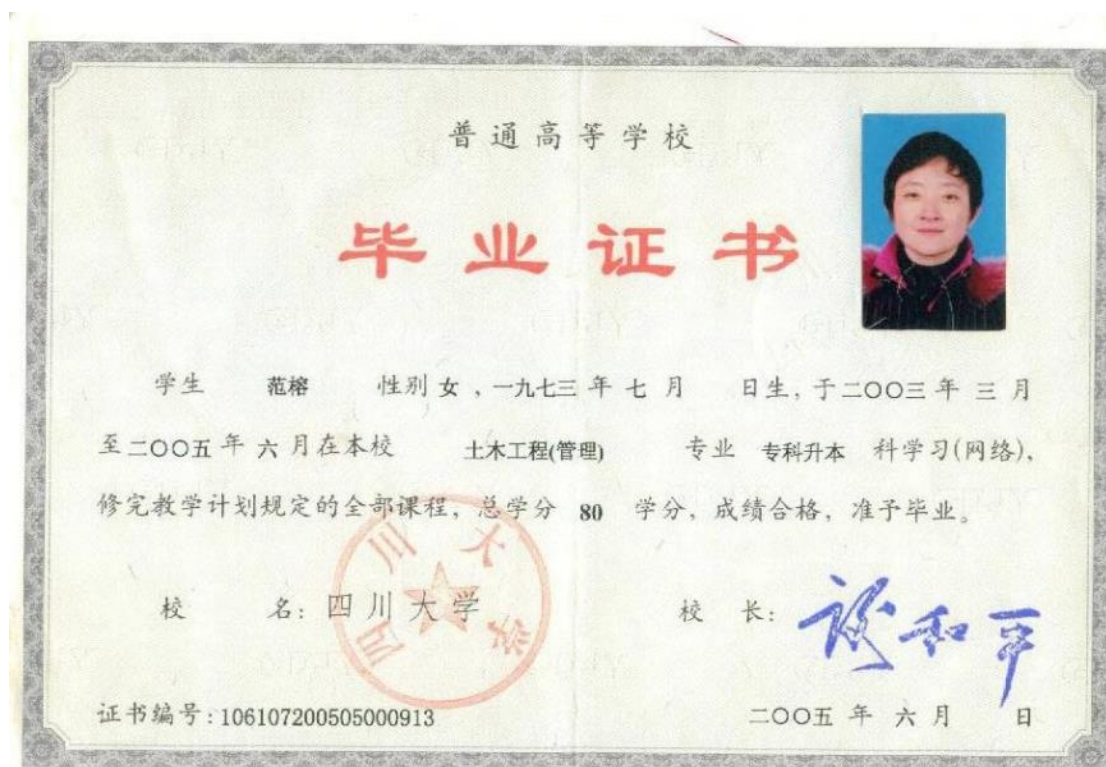 普通高等学校
毕业证书
学生 范榕 性别 女 , 一九七三 年 七 月 日生, 于二〇〇三 年 三 月
至二〇〇五 年 六 月在本校 土木工程(管理) 专业 专科升本 科学习(网络),
修完教学计划规定的全部课程, 总学分 80 学分, 成绩合格, 准予毕业。
四川大学
校 名: 四川大学 校 长: 谢和平
证书编号: 106107200505000913 二〇〇五 年 六 月 日